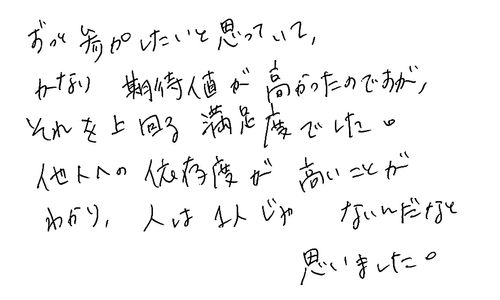 ずっと参加したいと思っていて、
かなり期待値が高かったのですが、
それを上回る満足度でした。
他人への依存度が高いことが
わかり、人は1人じゃないんだなと
思いました。